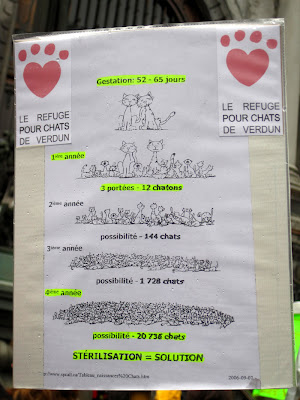 LE REFUGE
POUR CHATS
DE VERDUN
LE REFUGE
POUR CHATS
DE VERDUN
Gestation: 52 - 65 jours
1ière année
3 portées - 12 chatons
2ième année
possibilité - 144 chats
3ième année
possibilité - 1 728 chats
4ième année
possibilité - 20 736 chats
STÉRILISATION = SOLUTION